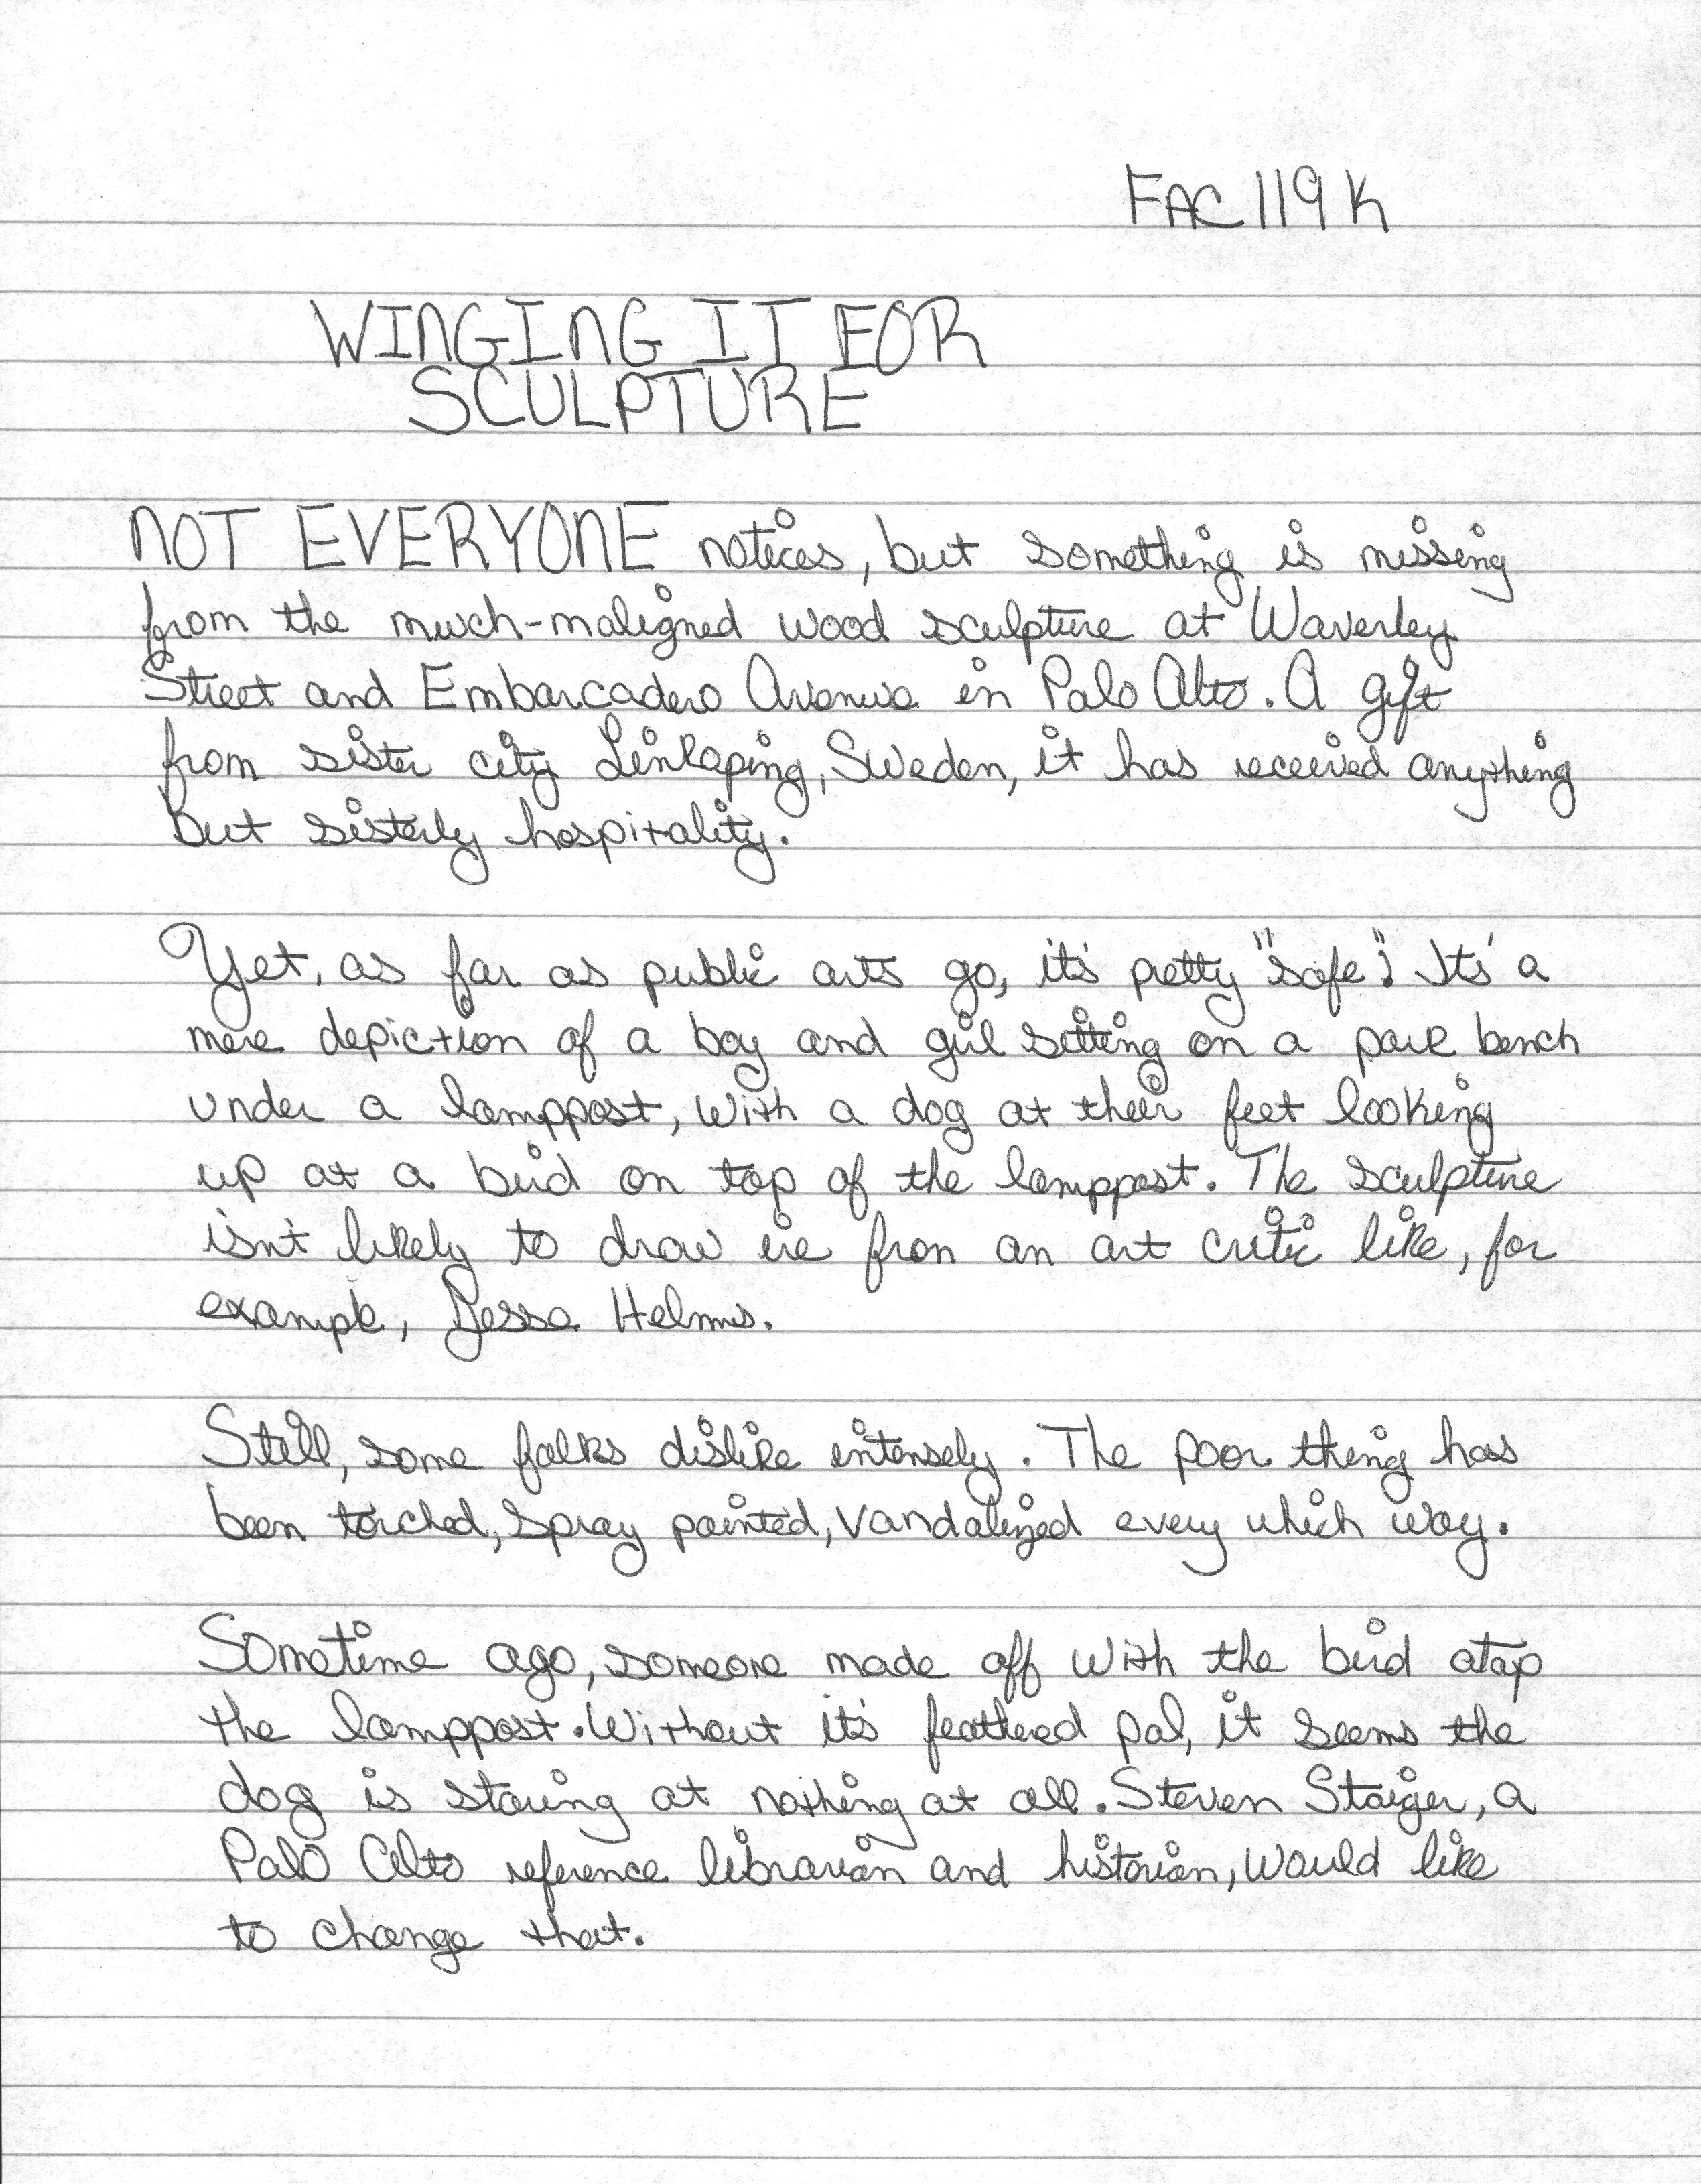 FAC 119 K
WINGING IT FOR
SCULPTURE
NOT EVERYONE notices, but something is missing
from the much-maligned wood sculpture at Waverley
Street and Embarcadero Avenue in Palo Alto. A gift
from sister city Linkoping, Sweden, it has received anything
but sisterly hospitality.
Yet, as far as public arts go, it's pretty "safe". It's a
mere depiction of a boy and girl sitting on a park bench
under a lamppost, with a dog at their feet looking
up at a bird on top of the lamppost. The sculpture
isn't likely to draw ire from an art critic like, for
example, Jesse Helms.
Still, some folks dislike intensely. The poor thing has
been torched, spray painted, vandalized every which way.
Sometime ago, someone made off with the bird atop
the lamppost. Without it's feathered pal, it seems the
dog is staring at nothing at all. Steven Staiger, a
Palo Alto reference librarian and historian, would like
to change that.